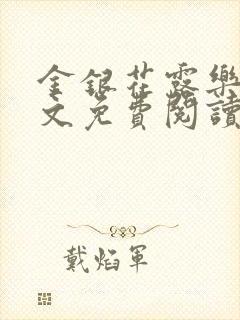 金银花露樂
文免費閱讀
戴焰軍